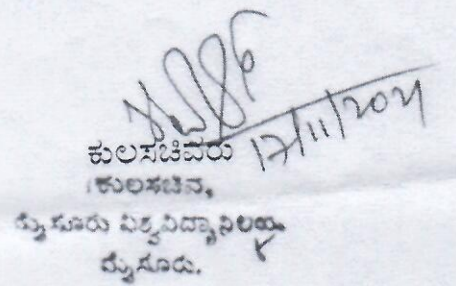 17/11/2021
ಕುಲಸಚಿವರು
ಕುಲಸಚಿವ,
ಮೈಸೂರು ವಿಶ್ವವಿದ್ಯಾನಿಲಯ
ಮೈಸೂರು.